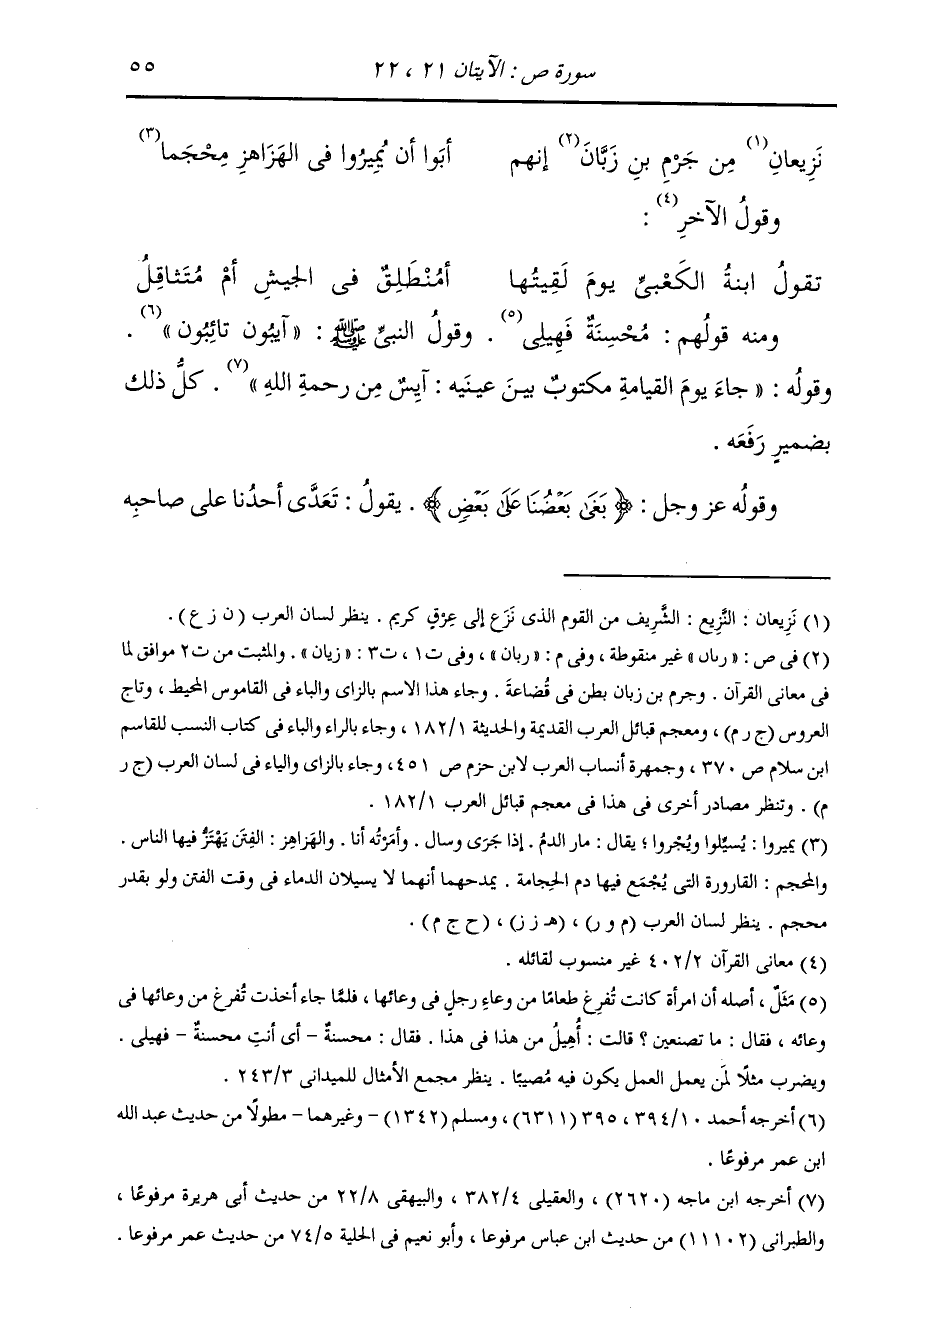 سورة ص : الآيتان ٢١ ، ٢٢ ٥٥
نَزِيعانِ(١) مِن جَرْمِ بنِ زَبَّانَ(٢) إنهم أبَوا أن يُمِيرُوا فى الهَزَاهزِ مِحْجَما(٣)
وقولُ الآخرِ(٤) :
تقولُ ابنةُ الكَعْبىِّ يومَ لَقِيتُها أمُنْطَلِقٌ فى الجيشِ أمْ مُتَثاقِلُ
ومنه قولُهم : مُحْسِنَةٌ فَهِيلى(٥) . وقولُ النبىِّ ﷺ : « آيبُون تائِبُون »(٦) .
وقولُه : « جاءَ يومَ القيامةِ مكتوبٌ بينَ عينَيه : آيِسٌ مِن رحمةِ اللهِ »(٧) . كلُّ ذلك
بضميرٍ رَفَعَه .
وقولُه عز وجل : ﴿ بَغَىٰ بَعْضُنَا عَلَىٰ بَعْضٍ ﴾ . يقولُ : تَعَدَّى أحدُنا على صاحبِه
(١) نَزِيعان : النَّزِيع : الشَّريف من القوم الذى نَزَع إلى عِرْقٍ كريم . ينظر لسان العرب ( ن ز ع ) .
(٢) فى ص : « رىاں » غير منقوطة ، وفى م : « ربان » ، وفى ت١ ، ت٣ : « زيان » . والمثبت من ت٢ موافق لما
فى معانى القرآن . وجرم بن زبان بطن فى قُضاعةَ . وجاء هذا الاسم بالزاى والباء فى القاموس المحيط ، وتاج
العروس (ج ر م) ، ومعجم قبائل العرب القديمة والحديثة ١٨٢/١ ، وجاء بالراء والباء فى كتاب النسب للقاسم
ابن سلام ص ٣٧٠ ، وجمهرة أنساب العرب لابن حزم ص ٤٥١ ، وجاء بالزاى والياء فى لسان العرب (ج ر
م) . وتنظر مصادر أخرى فى هذا فى معجم قبائل العرب ١٨٢/١ .
(٣) يميروا : يُسيِّلوا ويُجْروا ؛ يقال : مار الدمُ . إذا جَرَى وسال . وأمَرْتُه أنا . والهَزاهِز : الفِتَن يَهْتَزُّ فيها الناس .
والمحجم : القارورة التى يُجْمَع فيها دم الحِجامة . يمدحهما أنهما لا يسيلان الدماء فى وقت الفتن ولو بقدر
محجم . ينظر لسان العرب (م و ر) ، (هـ ز ز) ، (ح ج م) .
(٤) معانى القرآن ٤٠٢/٢ غير منسوب لقائله .
(٥) مَثَلٌ ، أصله أن امرأة كانت تُفرِغ طعامًا من وعاءِ رجلٍ فى وعائها ، فلمَّا جاء أخذت تُفرغ من وعائها فى
وعائه ، فقال : ما تصنعين ؟ قالت : أُهِيلُ من هذا فى هذا . فقال : محسنةٌ – أى أنتِ محسنةٌ – فهيلى .
ويضرب مثلًا لمَن يعمل العمل يكون فيه مُصيبًا . ينظر مجمع الأمثال للميدانى ٢٤٣/٣ .
(٦) أخرجه أحمد ٣٩٤/١٠ ، ٣٩٥ (٦٣١١) ، ومسلم (١٣٤٢) – وغيرهما – مطولًا من حديث عبد الله
ابن عمر مرفوعًا .
(٧) أخرجه ابن ماجه (٢٦٢٠) ، والعقيلى ٣٨٢/٤ ، والبيهقى ٢٢/٨ من حديث أبى هريرة مرفوعًا ،
والطبرانى (١١١٠٢) من حديث ابن عباس مرفوعا ، وأبو نعيم فى الحلية ٧٤/٥ من حديث عمر مرفوعا .